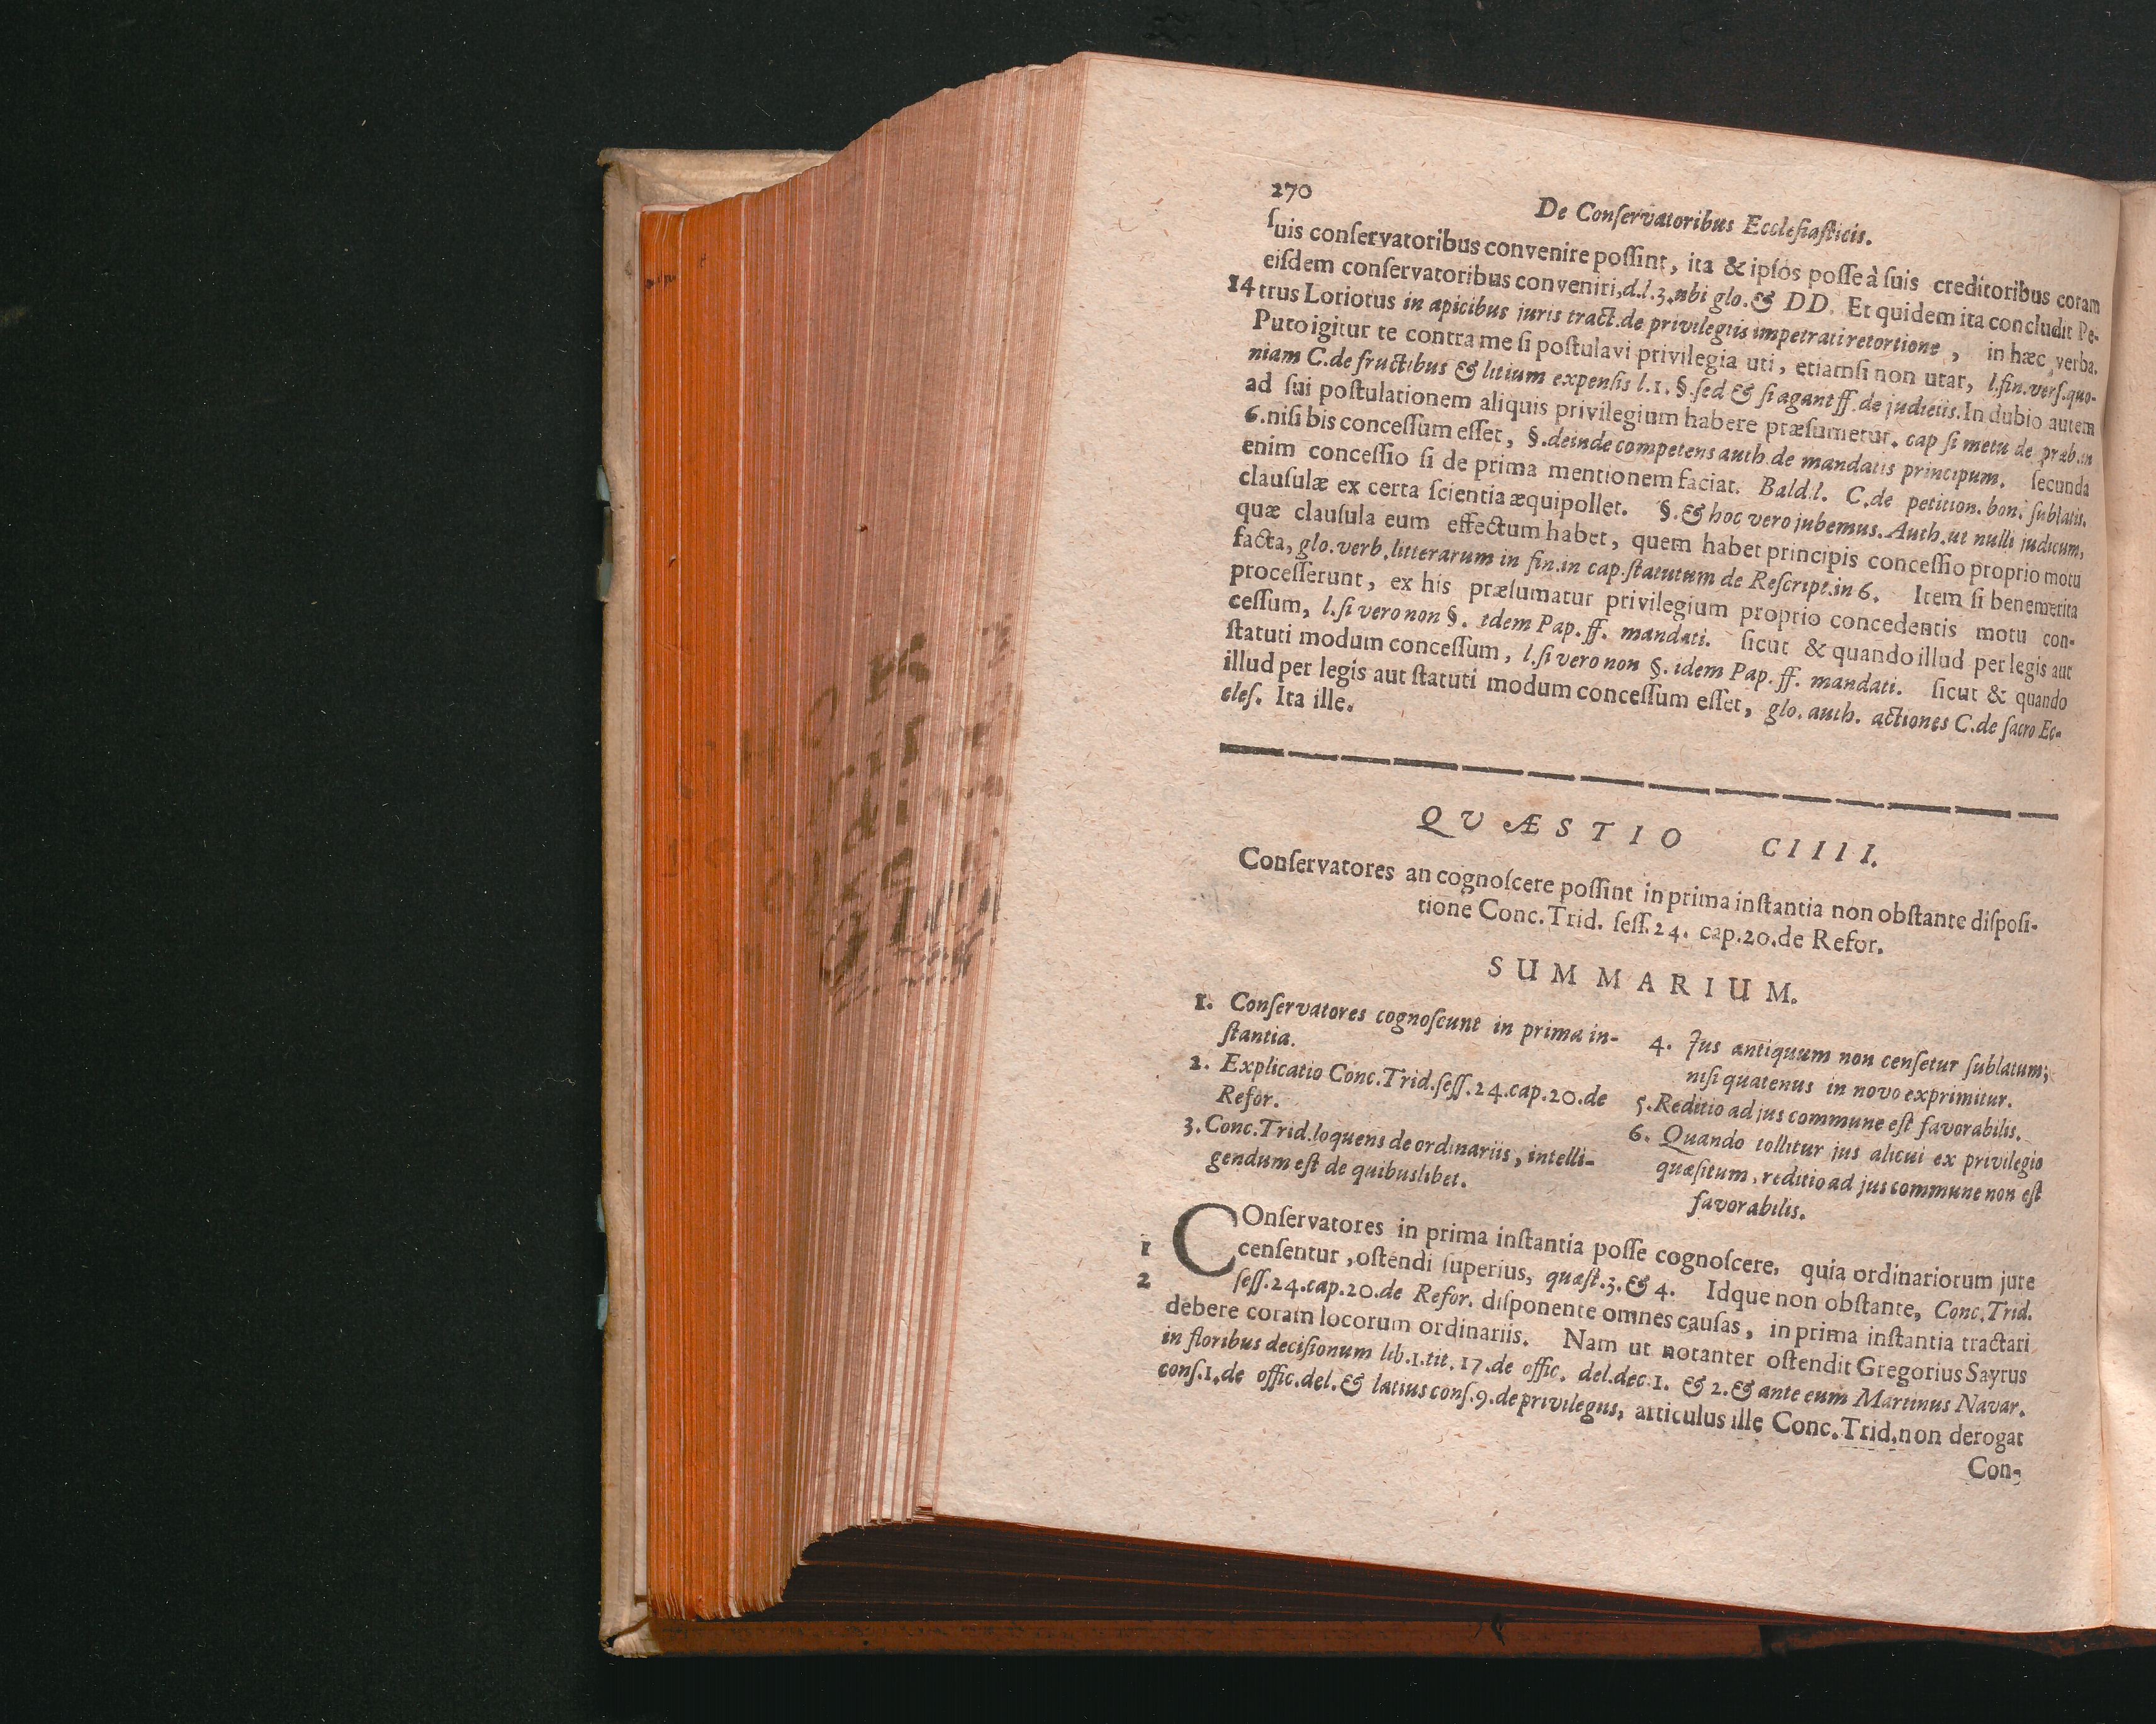 270
De Conſervatoribus Eccleſiaſticis.
ſuis conſervatoribus convenire poſſint, ita & ipſos poſſe à ſuis creditoribus coram
eiſdem conſervatoribus conveniri, d.l.3. ubi glo. & DD. Et quidem ita concludit Pe-
14 trus Loriotus in apicibus juris tract. de privilegiis impetrati retortione, in hæc verba.
Puto igitur te contra me ſi poſtulavi privilegia uti, etiamſi non utar, l. fin. verſ. quo-
niam C. de fructibus & litium expenſis l.1. §. ſed & ſi agant ff. de judiciis. In dubio autem
ad ſui poſtulationem aliquis privilegium habere præſumetur. cap ſi metu de præb. in
6. niſi bis conceſſum eſſet, §. deinde competens auth. de mandatis principum. ſecunda
enim conceſſio ſi de prima mentionem faciat. Bald. l. C. de petition. bon. ſublatis.
clauſulæ ex certa ſcientia æquipollet. §. & hoc vero jubemus. Auth. ut nulli judicum,
quæ clauſula eum effectum habet, quem habet principis conceſſio proprio motu
facta, glo. verb. litterarum in fin. in cap. ſtatutum de Reſcript. in 6. Item ſi benemerita
proceſſerunt, ex his præſumatur privilegium proprio concedentis motu con-
ceſſum, l. ſi vero non §. idem Pap. ff. mandati. ſicut & quando illud per legis aut
ſtatuti modum conceſſum, l. ſi vero non §. idem Pap. ff. mandati. ſicut & quando
illud per legis aut ſtatuti modum conceſſum eſſet, glo. auth. actiones C. de ſacro Ec-
cleſ. Ita ille.
QVÆSTIO CIIII.
Conſervatores an cognoſcere poſſint in prima inſtantia non obſtante diſpoſi-
tione Conc. Trid. ſeſſ. 24. cap. 20. de Refor.
SUMMARIUM.
1. Conſervatores cognoſcunt in prima in-
ſtantia.
2. Explicatio Conc. Trid. ſeſſ. 24. cap. 20. de
Refor.
3. Conc. Trid. loquens de ordinariis, intelli-
gendum eſt de quibuslibet.
4. Jus antiquum non cenſetur ſublatum,
niſi quatenus in novo exprimitur.
5. Reditio ad jus commune eſt favorabilis.
6. Quando tollitur jus alicui ex privilegio
quæſitum, reditio ad jus commune non eſt
favorabilis.
COnſervatores in prima inſtantia poſſe cognoſcere, quia ordinariorum jure
1 cenſentur, oſtendi ſuperius, quæſt. 3. & 4. Idque non obſtante, Conc. Trid.
2 ſeſſ. 24. cap. 20. de Refor. diſponente omnes cauſas, in prima inſtantia tractari
debere coram locorum ordinariis. Nam ut notanter oſtendit Gregorius Sayrus
in floribus deciſionum lib. 1. tit. 17. de offic. del. dec. 1. & 2. & ante eum Martinus Navar.
conſ. 1. de offic. del. & latius conſ. 9. de privilegiis, articulus ille Conc. Trid. non derogat
Con-